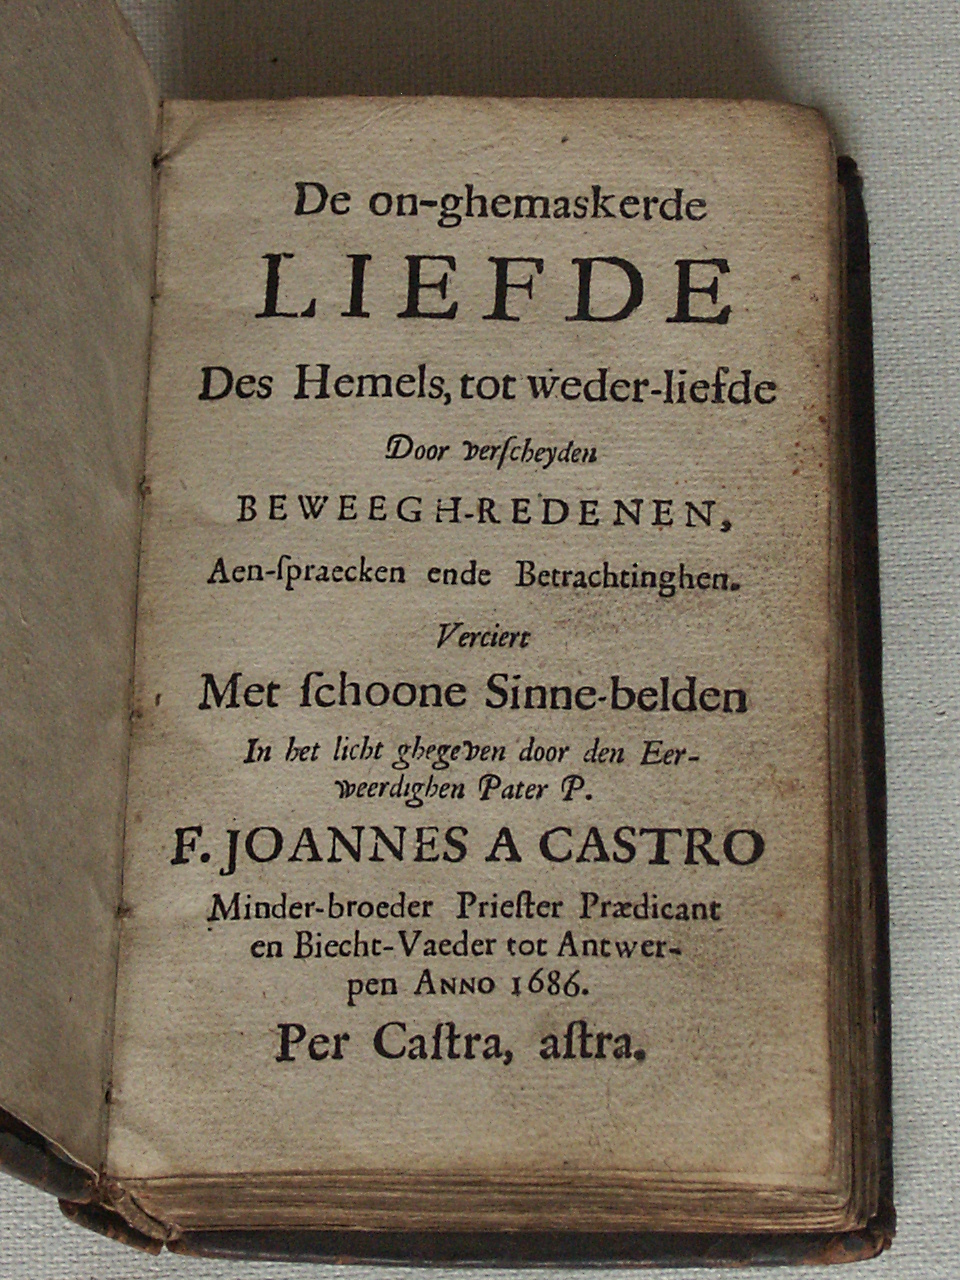 De on-ghemaskerde
LIEFDE
Des Hemels, tot weder-liefde
Door verſcheyden
BEWEEGH-REDENEN,
Aen-ſpraecken ende Betrachtinghen.
Verciert
Met ſchoone Sinne-belden
In het licht ghegeven door den Eer-
weerdighen Pater P.
F. JOANNES A CASTRO
Minder-broeder Prieſter Prædicant
en Biecht-Vaeder tot Antwer-
pen ANNO 1686.
Per Caſtra, aſtra.